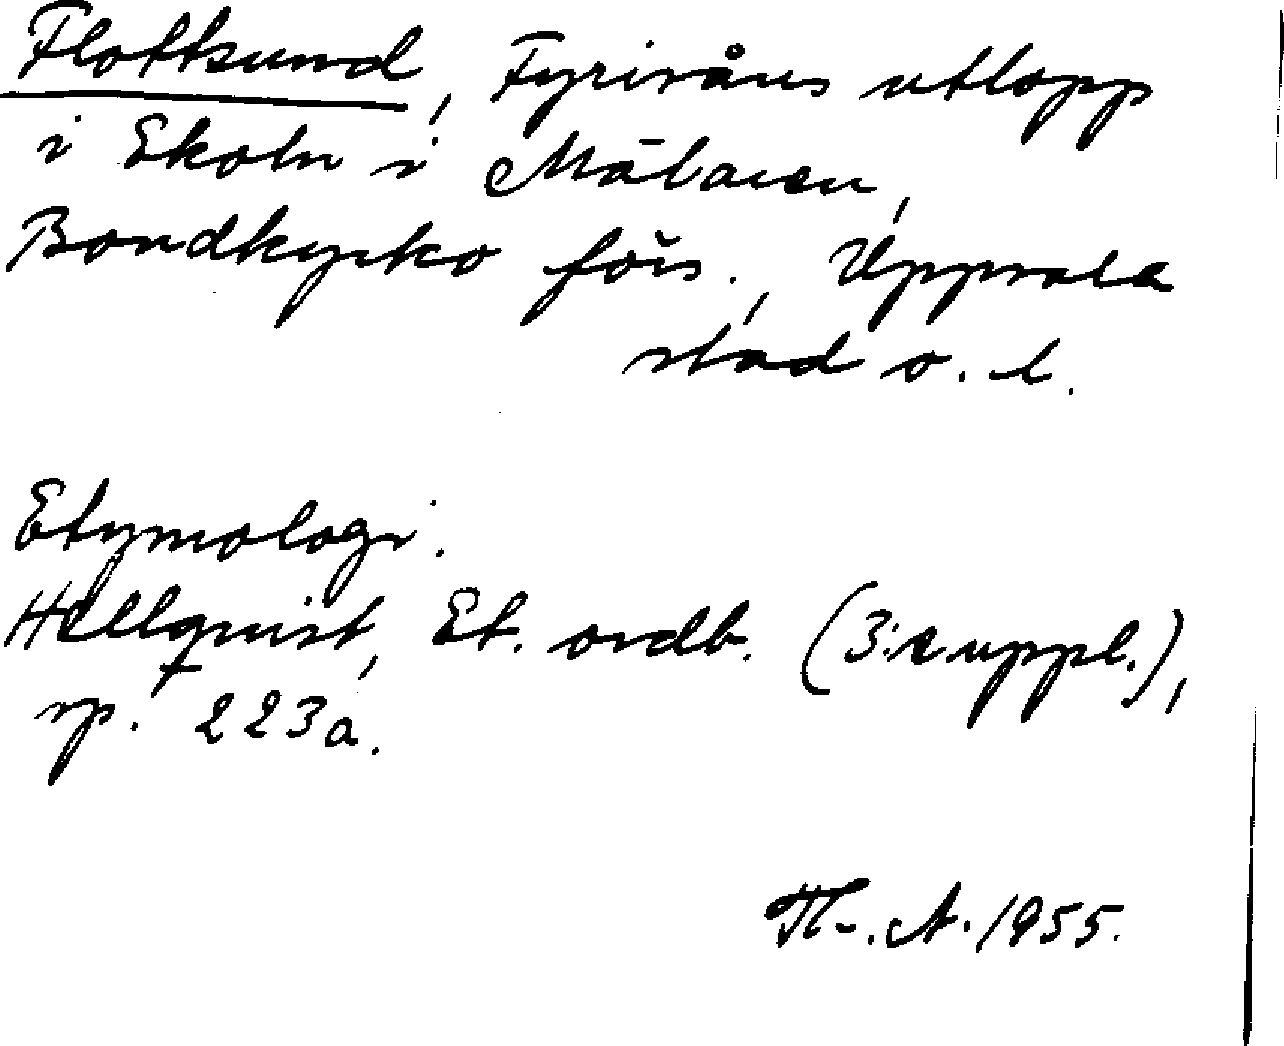 Flottsund, Fyrisåns utlopp
i Ekoln i Mälaren,
Bondkyrko förs., Uppsala
stad o. l.
Etymologi.
Hellquist, Et. ordb. (3:e uppl.),
sp. 223a.
Th-.A. 1955.